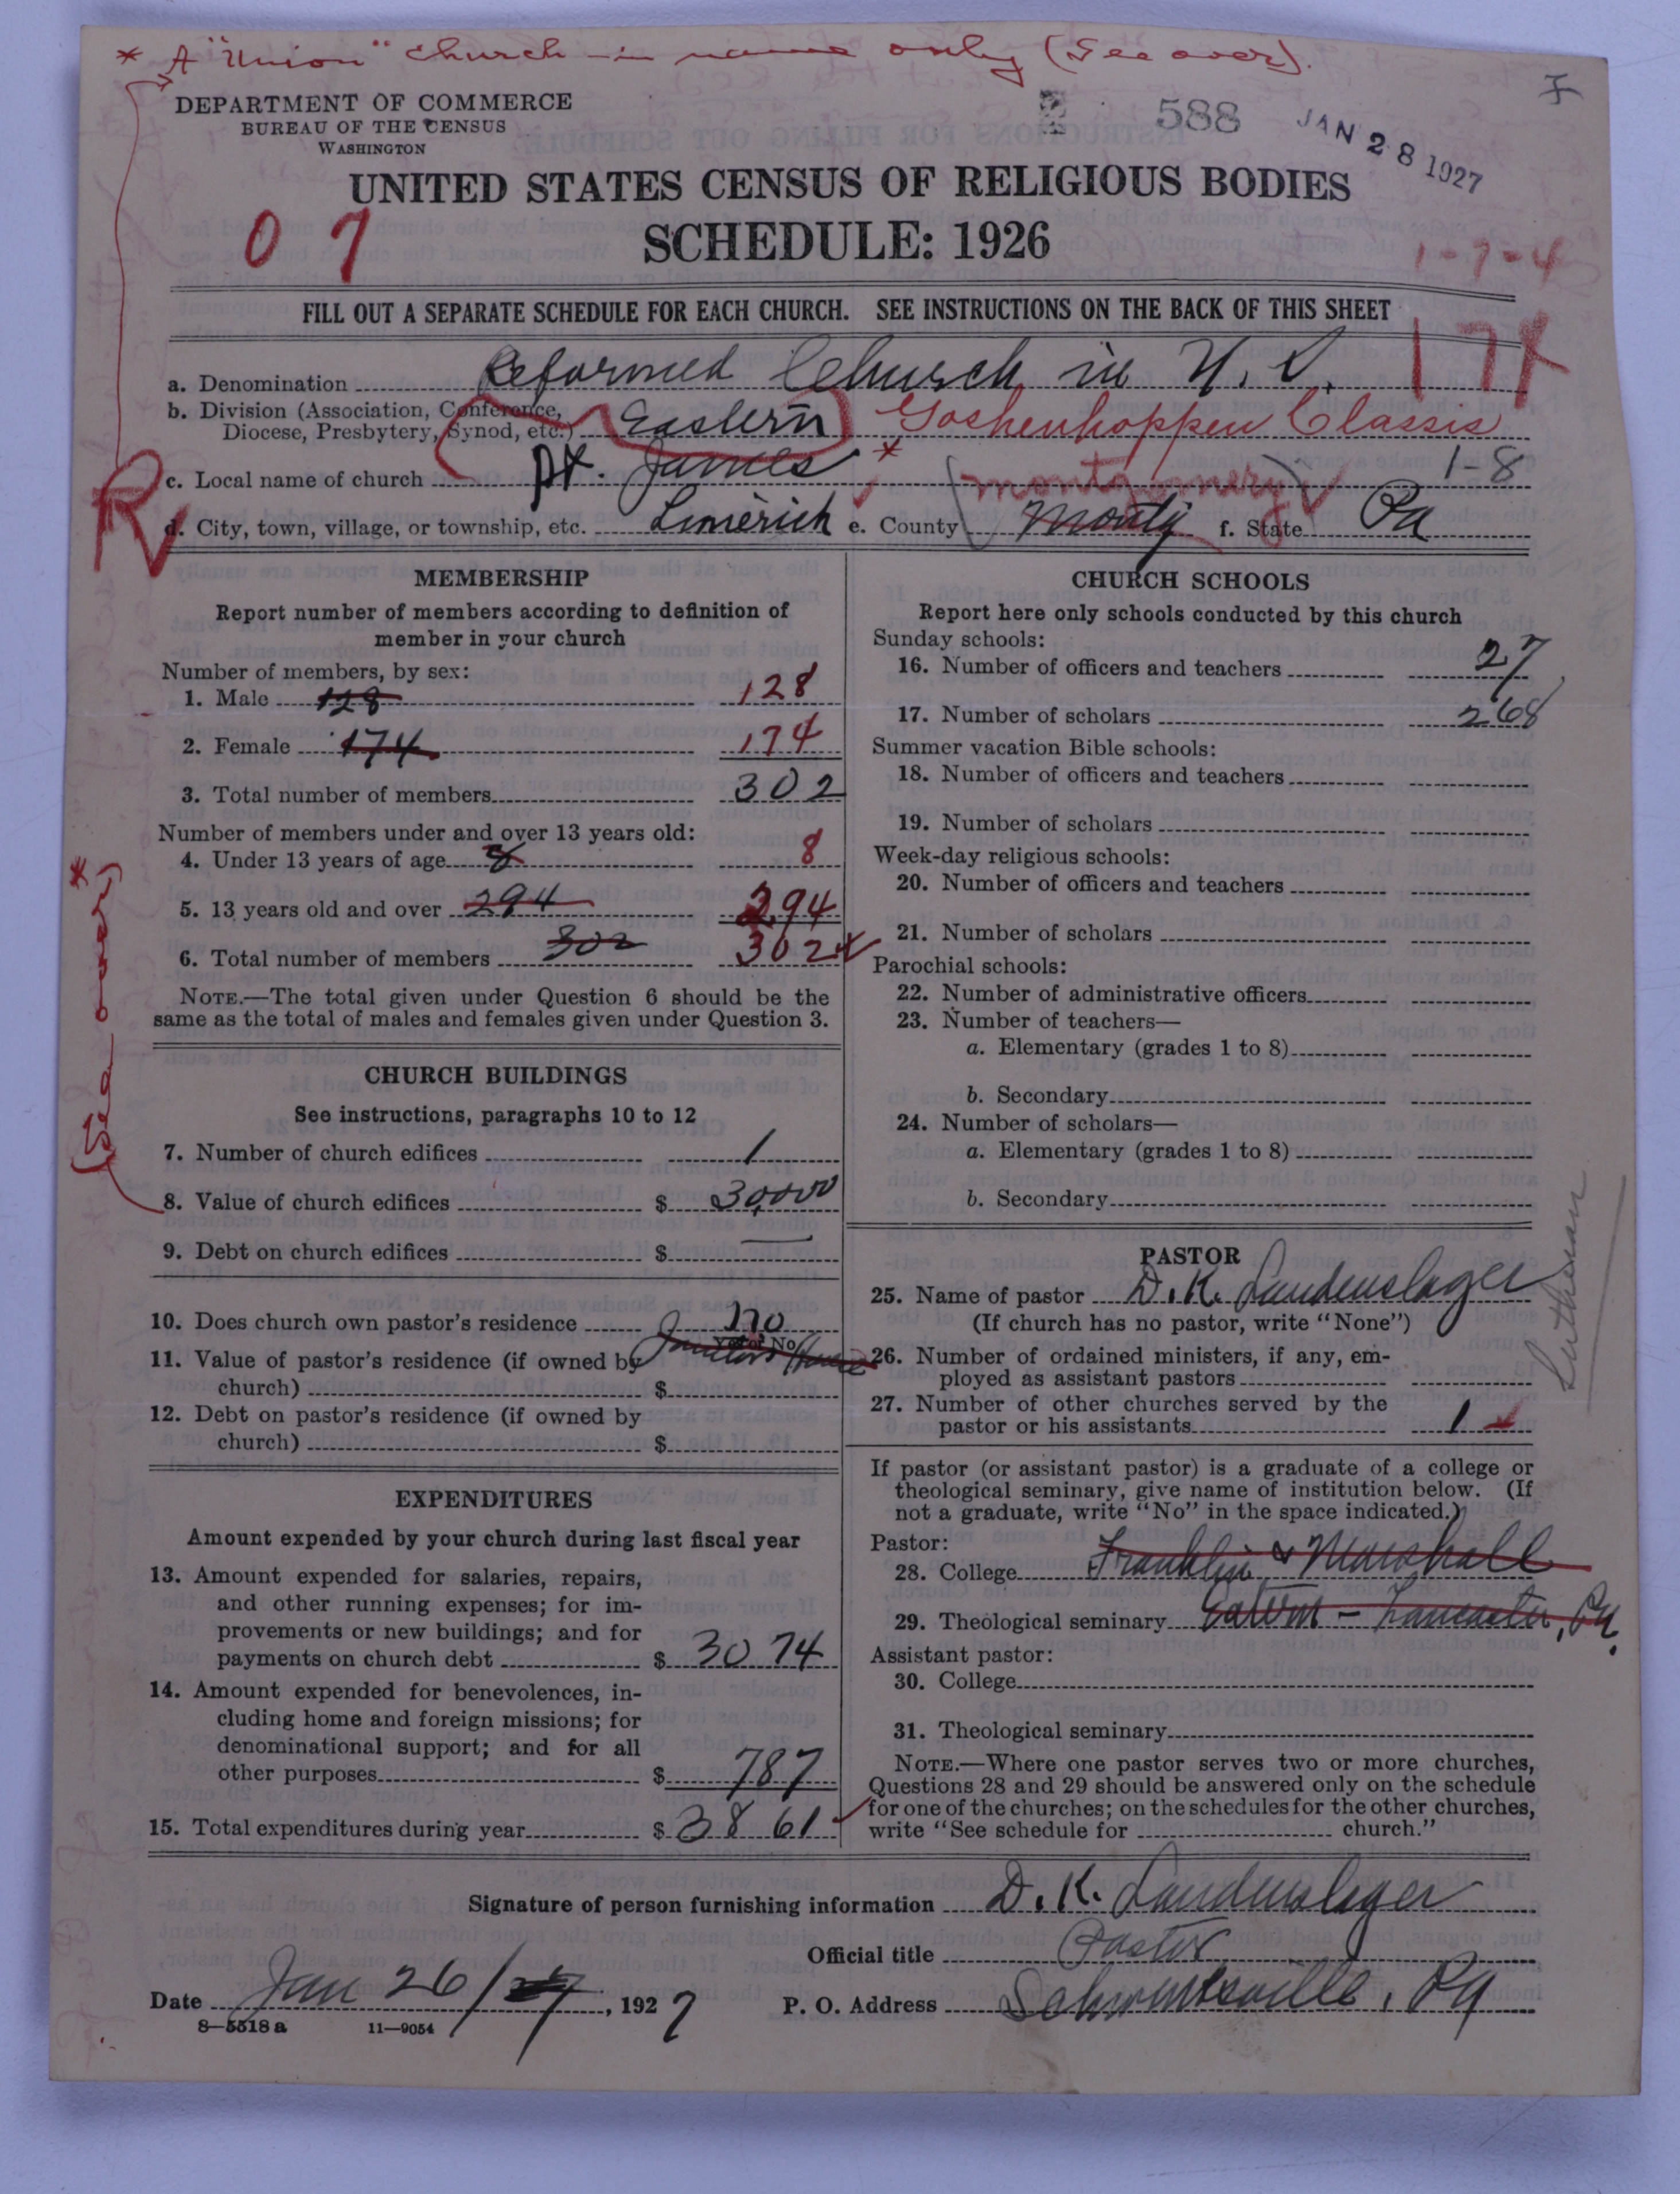 * A "Union" church - in name only (See over).
DEPARTMENT OF COMMERCE
BUREAU OF THE CENSUS
WASHINGTON
588
JAN 28 1927
UNITED STATES CENSUS OF RELIGIOUS BODIES
SCHEDULE: 1926
0 7
1-7-4
FILL OUT A SEPARATE SCHEDULE FOR EACH CHURCH. SEE INSTRUCTIONS ON THE BACK OF THIS SHEET
174
a. Denomination Reformed Church in U. S.
b. Division (Association, Conference, Diocese, Presbytery, Synod, etc.) Eastern Goshenhoppen Classis
c. Local name of church St. James * 1-8
d. City, town, village, or township, etc. Limerick e. County Montg (Montgomery) f. State Pa
MEMBERSHIP
Report number of members according to definition of
member in your church
Number of members, by sex:
1. Male 128 128
2. Female 174 174
3. Total number of members 302
Number of members under and over 13 years old:
4. Under 13 years of age 8 8
5. 13 years old and over 294 294
6. Total number of members 302 302
NOTE.—The total given under Question 6 should be the
same as the total of males and females given under Question 3.
CHURCH BUILDINGS
See instructions, paragraphs 10 to 12
7. Number of church edifices 1
(See over) *
8. Value of church edifices $ 30,000
9. Debt on church edifices $ —
10. Does church own pastor's residence no
Yes or No
11. Value of pastor's residence (if owned by
church) $
12. Debt on pastor's residence (if owned by
church) $
EXPENDITURES
Amount expended by your church during last fiscal year
13. Amount expended for salaries, repairs,
and other running expenses; for im-
provements or new buildings; and for
payments on church debt $ 3074
14. Amount expended for benevolences, in-
cluding home and foreign missions; for
denominational support; and for all
other purposes $ 787
15. Total expenditures during year $ 3861
CHURCH SCHOOLS
Report here only schools conducted by this church
Sunday schools:
16. Number of officers and teachers 27
17. Number of scholars 268
Summer vacation Bible schools:
18. Number of officers and teachers
19. Number of scholars
Week-day religious schools:
20. Number of officers and teachers
21. Number of scholars
Parochial schools:
22. Number of administrative officers
23. Number of teachers—
a. Elementary (grades 1 to 8)
b. Secondary
24. Number of scholars—
a. Elementary (grades 1 to 8)
b. Secondary
PASTOR
25. Name of pastor D. K. Laudenslager
(If church has no pastor, write "None")
Lutheran
26. Number of ordained ministers, if any, em-
ployed as assistant pastors
27. Number of other churches served by the
pastor or his assistants 1
If pastor (or assistant pastor) is a graduate of a college or
theological seminary, give name of institution below. (If
not a graduate, write "No" in the space indicated.)
Pastor:
28. College Franklin & Marshall
29. Theological seminary Eastern - Lancaster, Pa.
Assistant pastor:
30. College
31. Theological seminary
NOTE.—Where one pastor serves two or more churches,
Questions 28 and 29 should be answered only on the schedule
for one of the churches; on the schedules for the other churches,
write "See schedule for church."
Signature of person furnishing information D. K. Laudenslager
Official title Pastor
Date Jan 26/27, 1927 P. O. Address Schwenksville, Pa
8—5518 a 11—9054